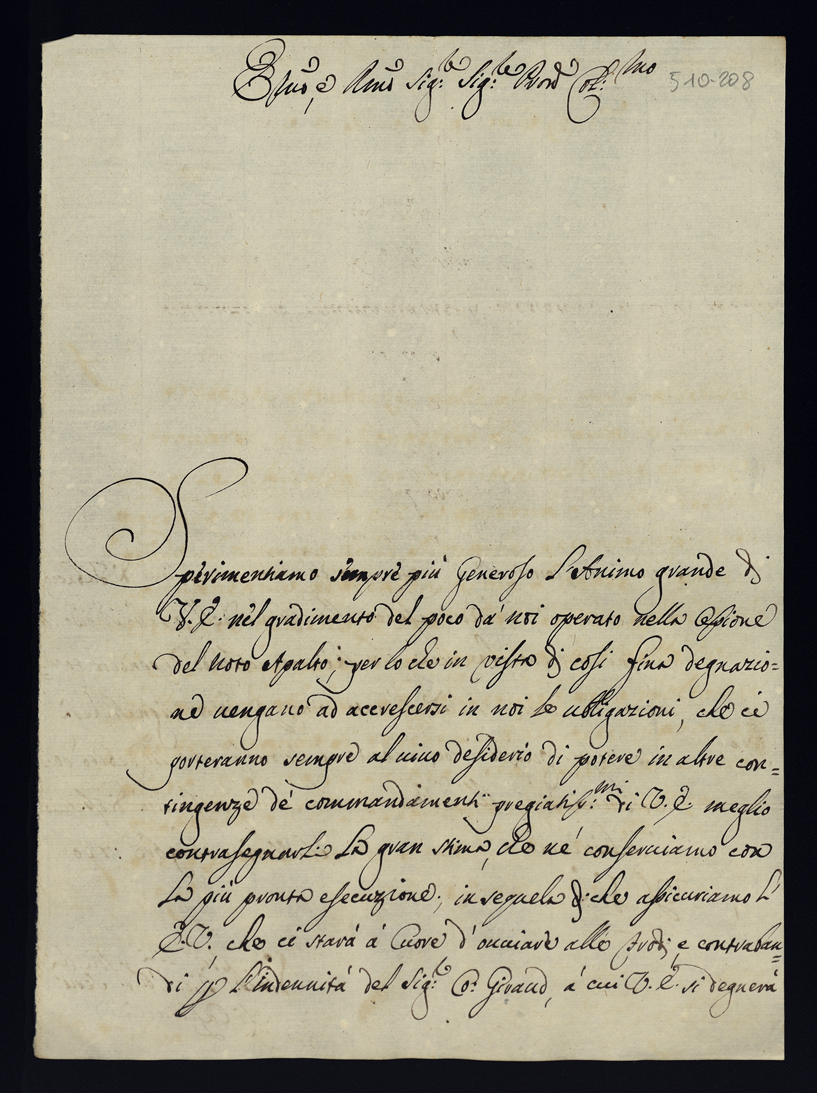 Emo, e Rmo Sig:re Sig:re Pron Col:mo
510-208
Sperimentiamo sempre più Generoso l'Animo grande di
V. E. nel gradimento del poco da' noi operato nella Cessione
del noto Apalto; per lo che in vista di così fina degnazio=
ne vengano ad accrescersi in noi le obligazioni, che ci
porteranno sempre al vivo desiderio di potere in altre con=
tingenze de' commandamenti pregiatiss:mi di V. E. meglio
contrasegnarLe La gran stima, che ne' conserviamo con
La più pronta esecuzione; in sequela di che assicuriamo L'
E. V., che ci starà à Cuore d'ovviare alle frodi, e contraban=
di p L'indennità del Sig:re Co: Giraud, à cui V. E. si degnerà